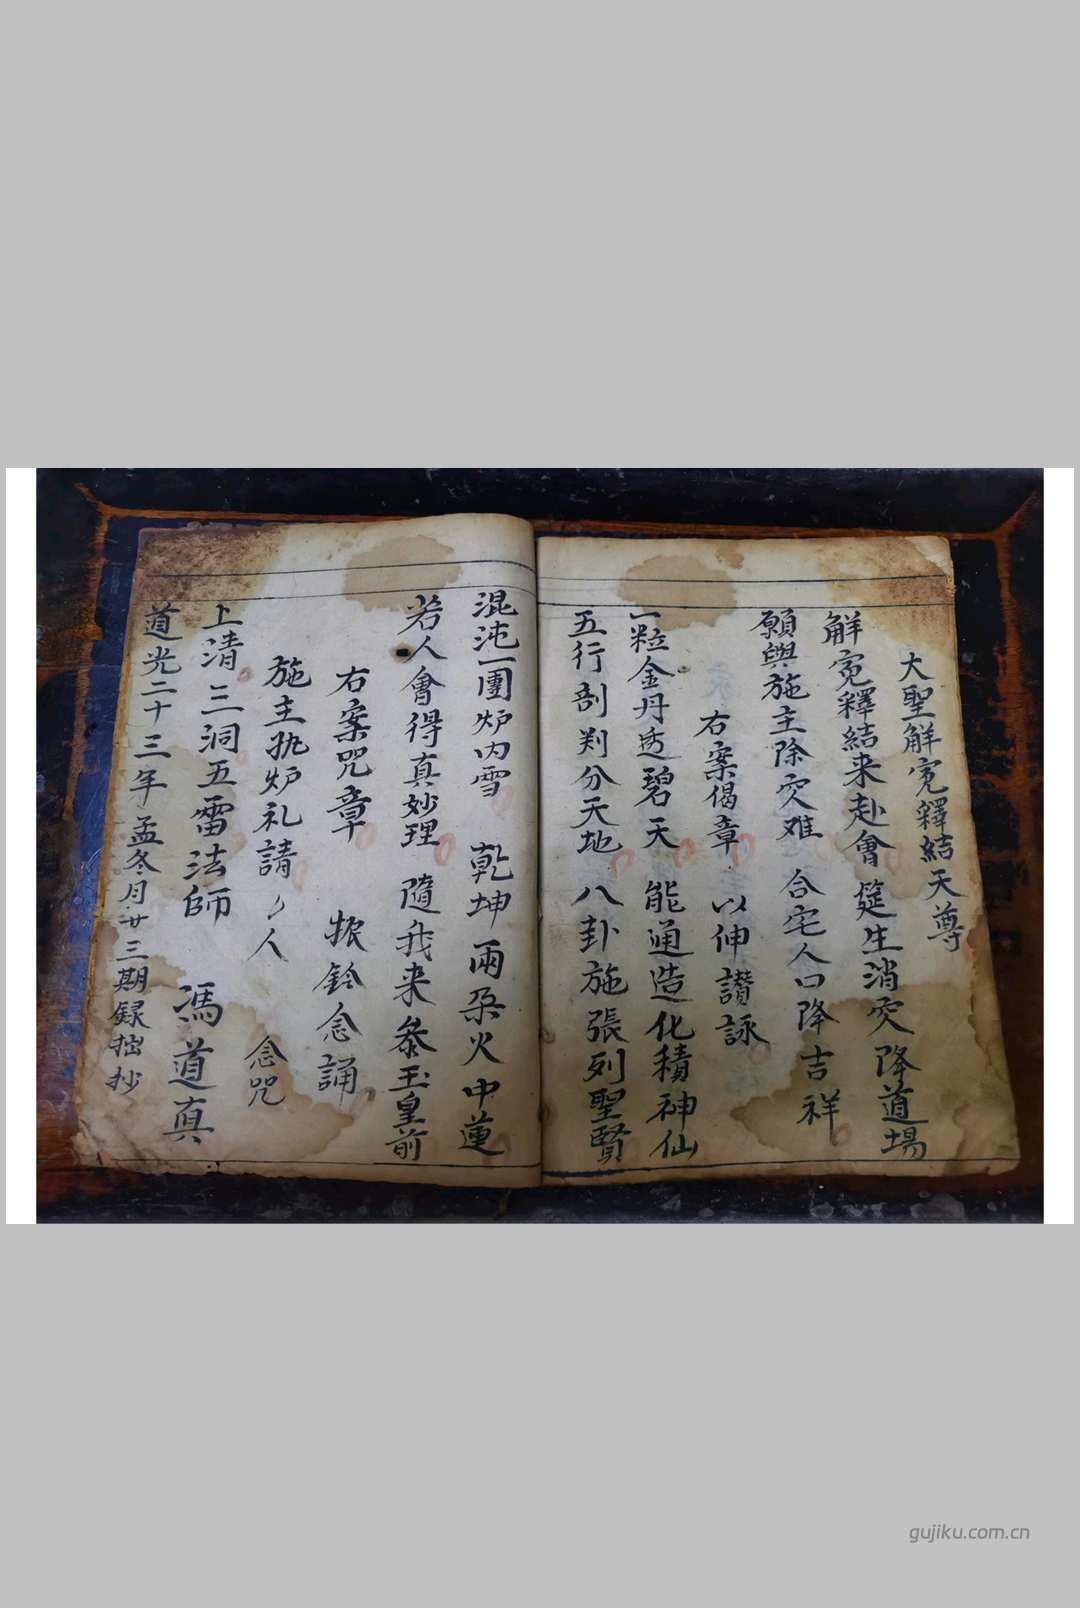 大聖解寃釋結天尊
解寃釋結来赴會 筵生消灾降道場
願與施主除灾难 合宅人口降吉祥
右案偈章 以伸讃詠
一粒金丹透碧天 能通造化積神仙
五行剖判分天地 八卦施張列聖賢
混沌一團炉内雪 乾坤兩朶火中蓮
若人會得真妙理 隨我来叅玉皇前
右案咒章 振鈴念誦
施主执炉礼請 人 念咒
上清三洞五雷法師 馮道真
道光二十三年孟冬月廿三期録拙抄
gujiku.com.cn